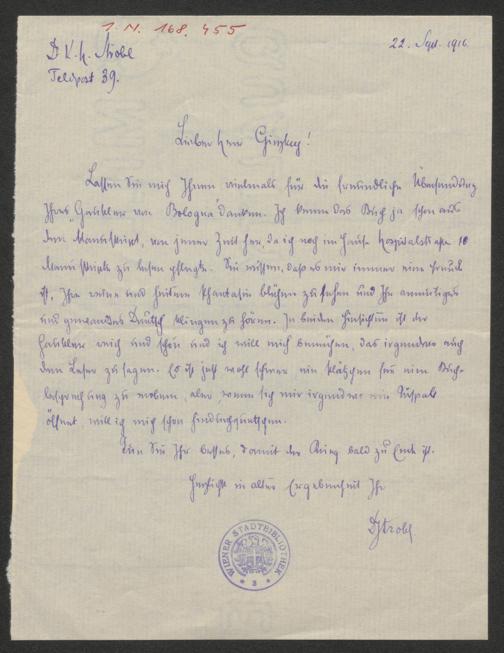 I. N. 168.455
Dr K. H. Strobl
Feldpost 39.
22. Sept. 1916
Lieber Herr Ginzkey!
Lassen Sie mich Ihnen vielmals für die freundliche Übersendung
Ihres „Gaukler von Bologna" danken. Ich kenne das Buch ja schon aus
dem Manuskript, von jener Zeit her, da ich noch im Hause Hospitalstraße 10
Manuskripte zu lesen pflegte. Sie wissen, daß es mir immer eine Freude
ist, Ihre reine und heitere Phantasie blühen zu sehen und Ihr anmutiges
und gewandtes Deutsch klingen zu hören. In beiden Hinsichten ist der
Gaukler reich und schön und ich will mich bemühen, das irgendwo auch
dem Leser zu sagen. Es ist jetzt wohl schwer ein Plätzchen für eine Buch-
besprechung zu erobern, aber wenn sich mir irgendwo ein Türspalt
öffnet, will ich mich schon hindurchquetschen.
Tun Sie Ihr bestes, damit der Krieg bald zu Ende ist.
Herzlichst in alter Ergebenheit Ihr
DrStrobl
WIENER STADTBIBLIOTHEK
* 3 *